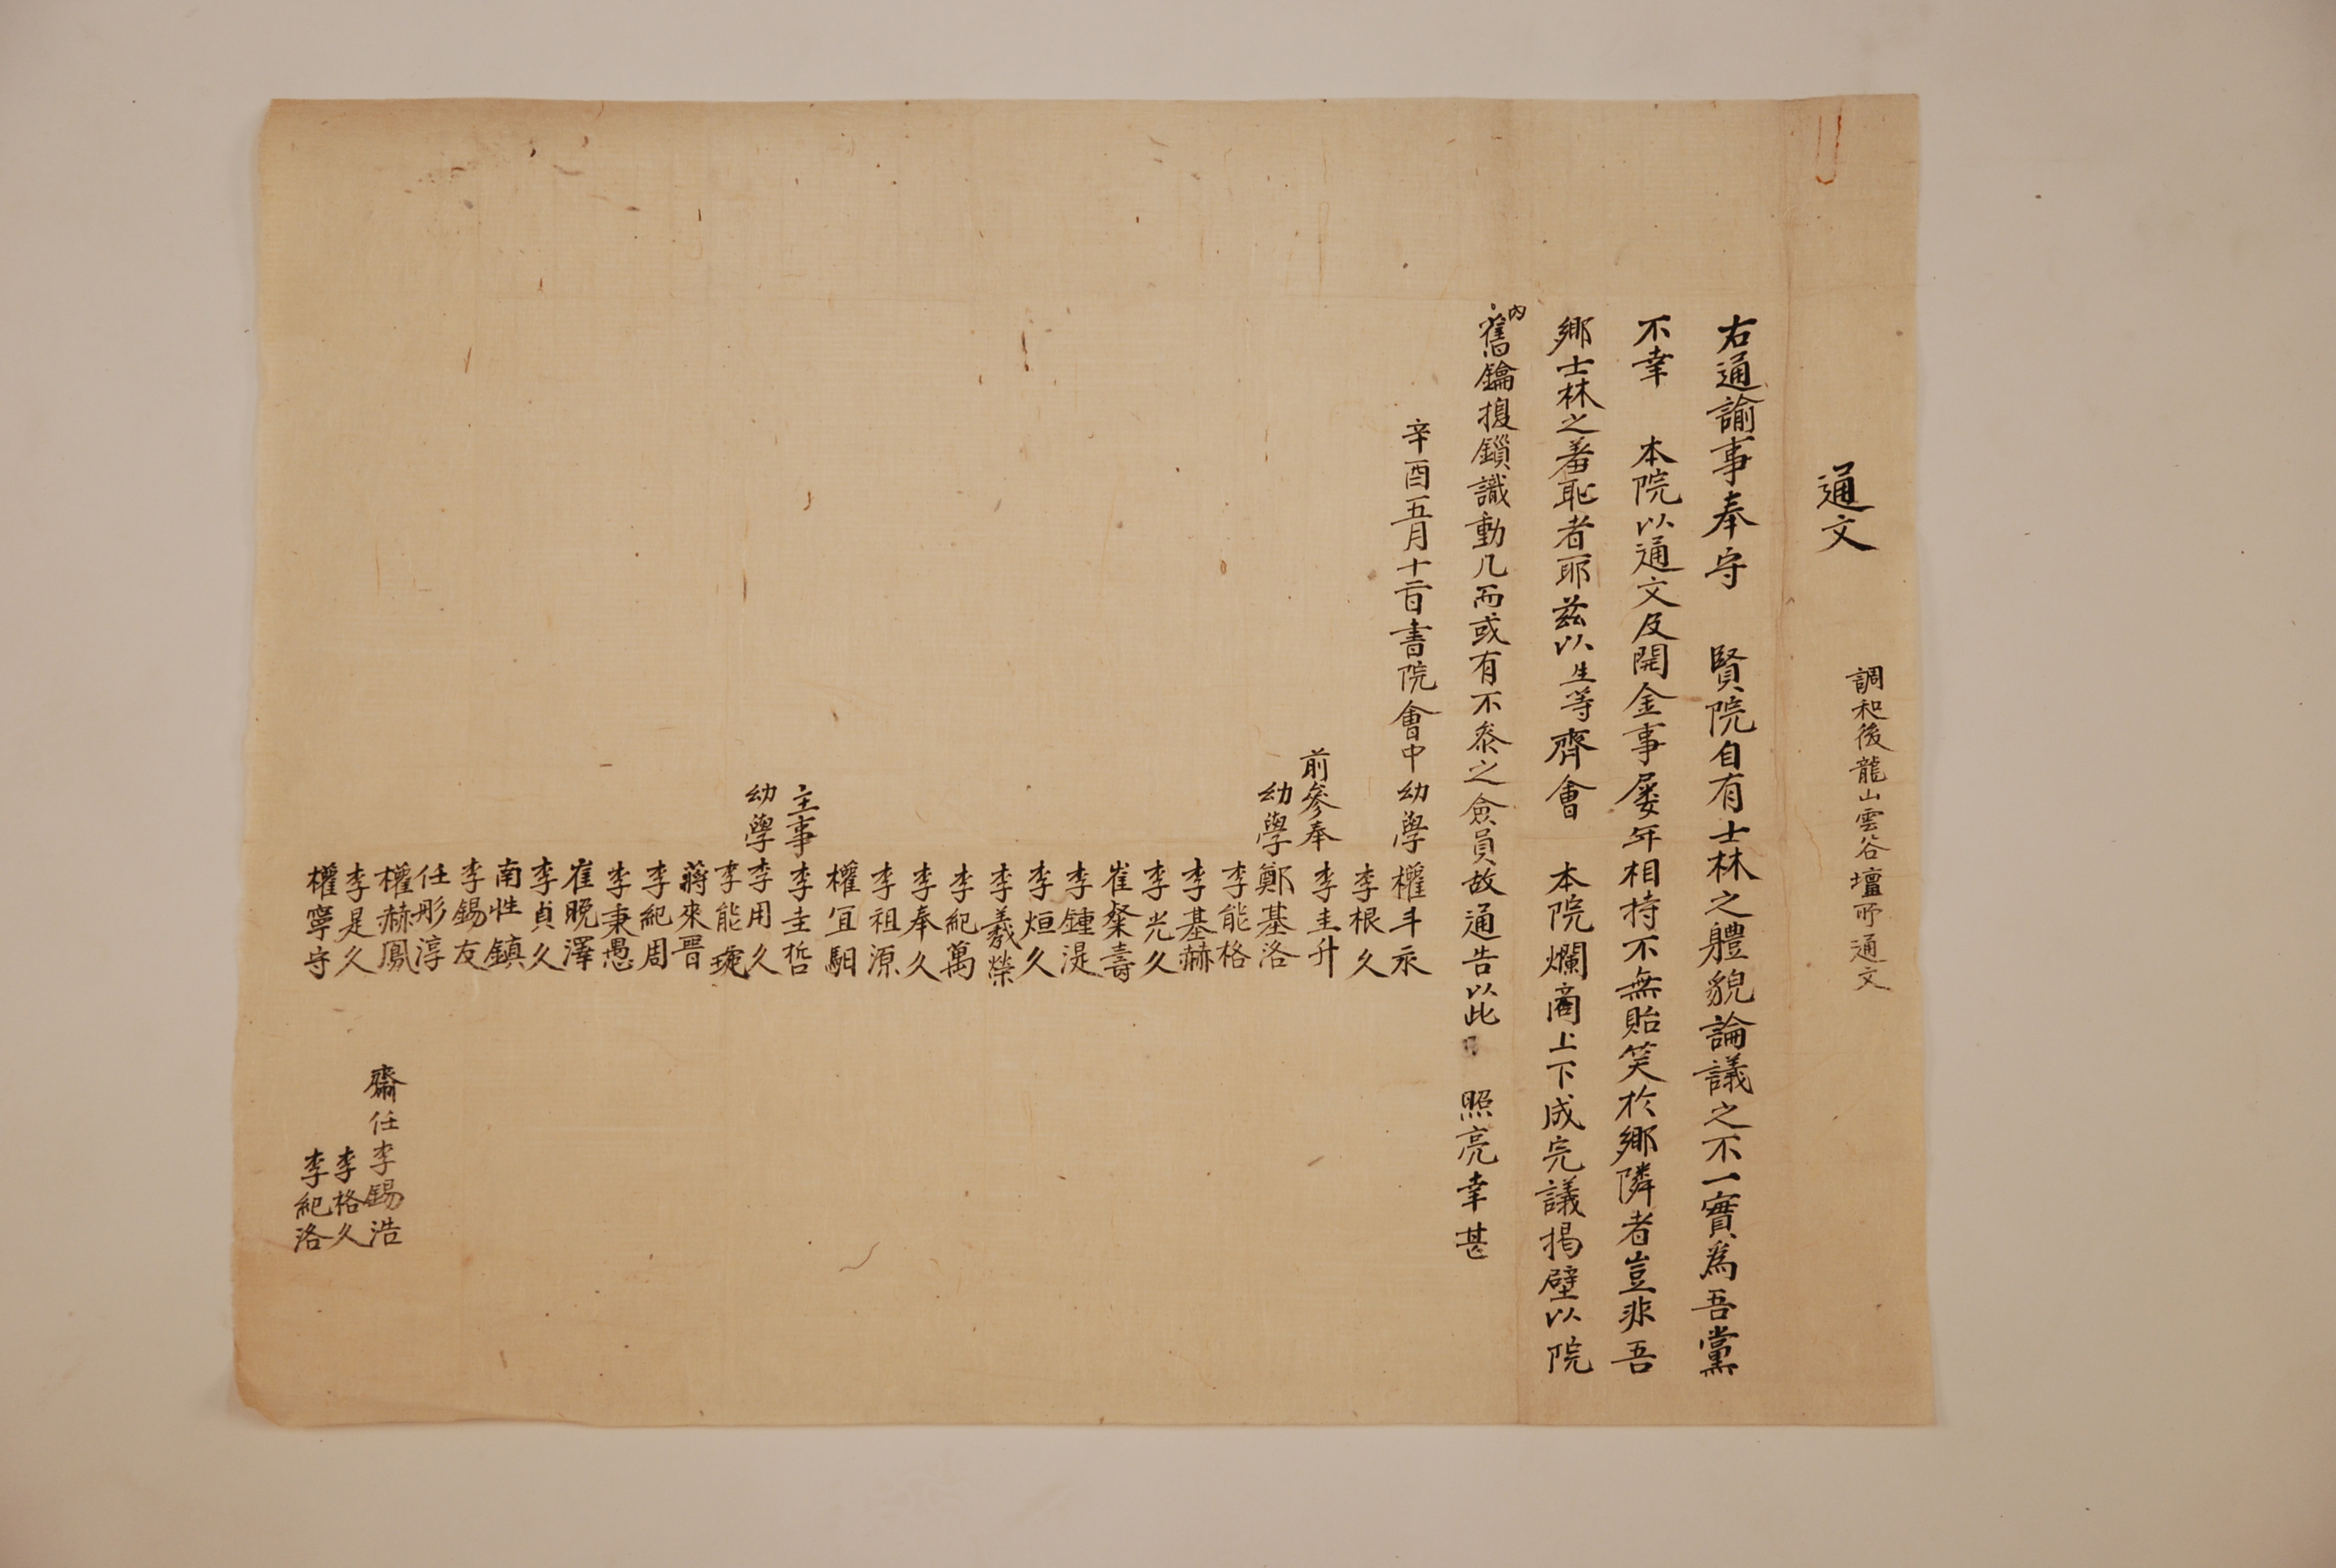 通文
調和後龍山雲谷壇所通文
右通諭事奉守 賢院自有士林之體貌論議之不一實爲吾黨
不幸 本院以通文及開金事屡年相持不無貽笑於鄉隣者豈非吾
鄉士林之羞恥者耶玆以生等齊會 本院爛商上下成完議揭壁以院
內舊鑰搜鎻識動几而或有不叅之僉員故通告以此 照亮幸甚
辛酉五月十二日書院會中幼學權斗永
李根久
前參奉李圭升
幼學鄭基洛
李能格
李基赫
李光久
崔粲壽
李鍾湜
李烜久
李羲榮
李紀萬
李奉久
李祖源
權宜馹
主事李圭哲
幼學李用久
李能琬
蔣來晋
李紀周
李秉愚
崔晚澤
李貞久
南性鎮
李錫友
任彤淳
權赫鳳
李是久
權寧守
齋任李錫浩
李格久
李紀洛